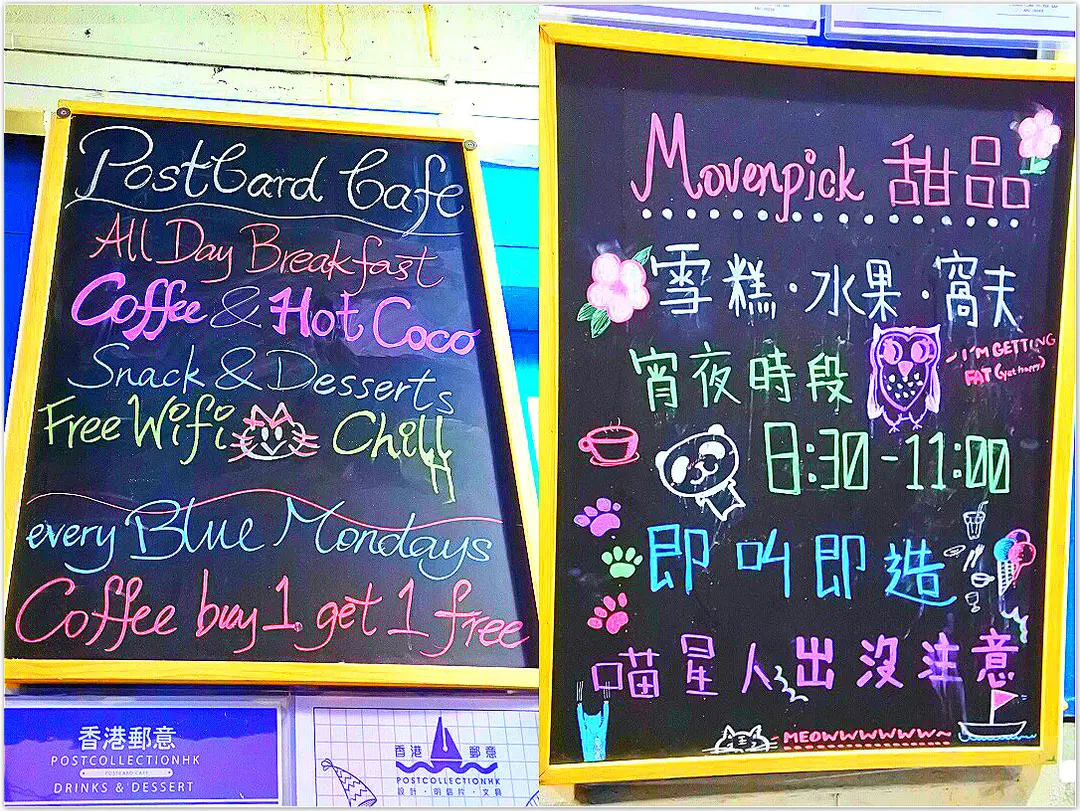 PostCard Cafe
All Day Breakfast
Coffee & Hot Coco
Snack & Desserts
Free Wifi Chill
every Blue Mondays
Coffee buy 1 get 1 free
香港郵意
POSTCOLLECTIONHK
POSTCARD CAFE
DRINKS & DESSERT
香港 郵意
POSTCOLLECTIONHK
設計·明信片·文具
Movenpick 甜品
雪糕·水果·窩夫
宵夜時段
I'M GETTING
FAT (yet happy)
8:30-11:00
即叫即造
喵星人出沒注意
MEOWWWWWWW~